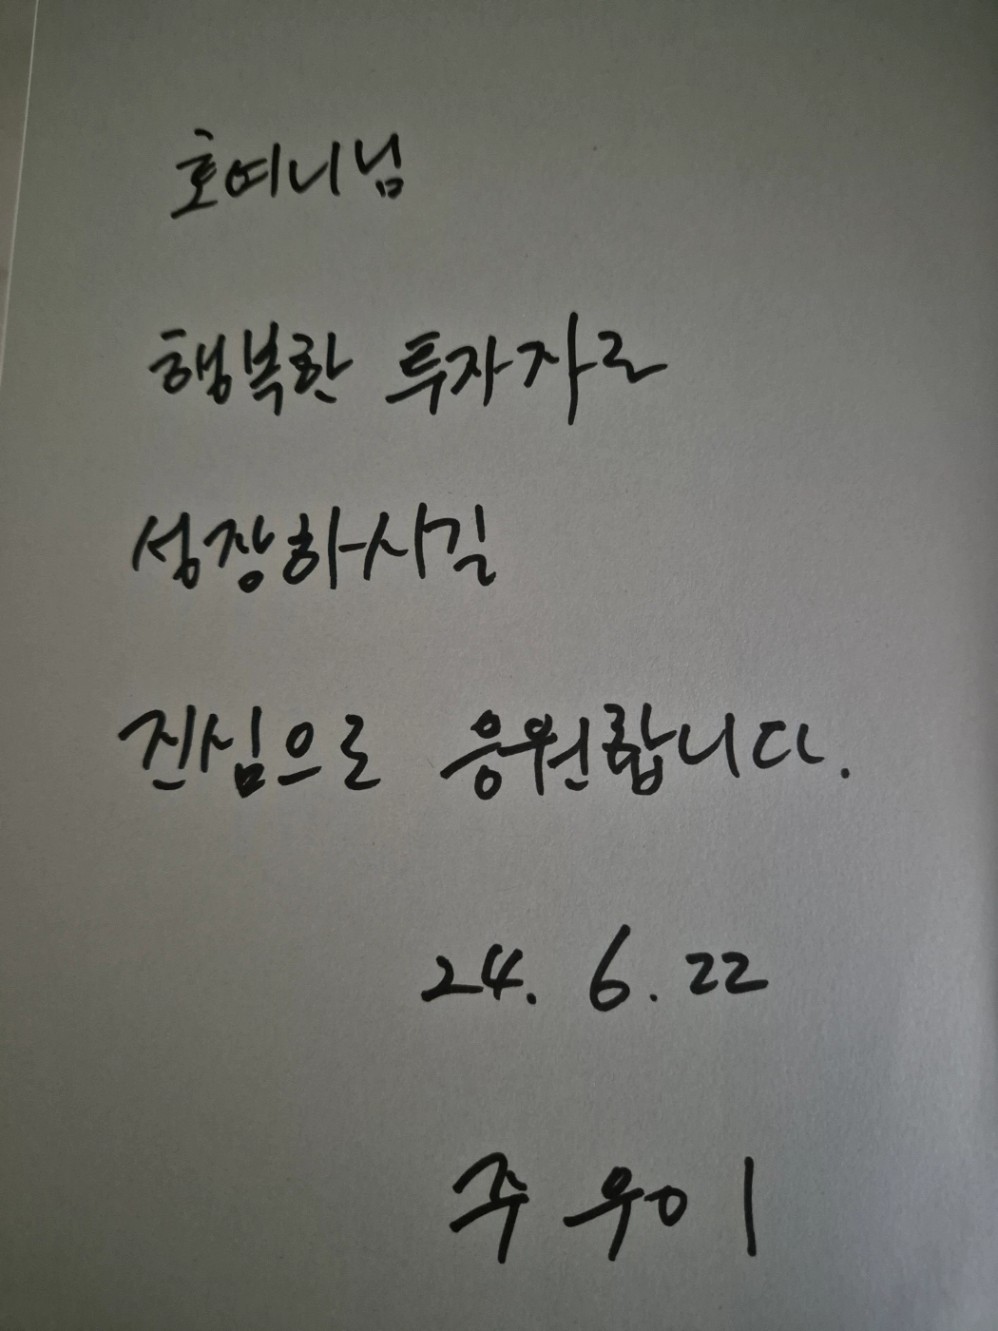 호예니님
행복한 투자자로
성장하시길
진심으로 응원합니다.
24. 6. 22
주우이